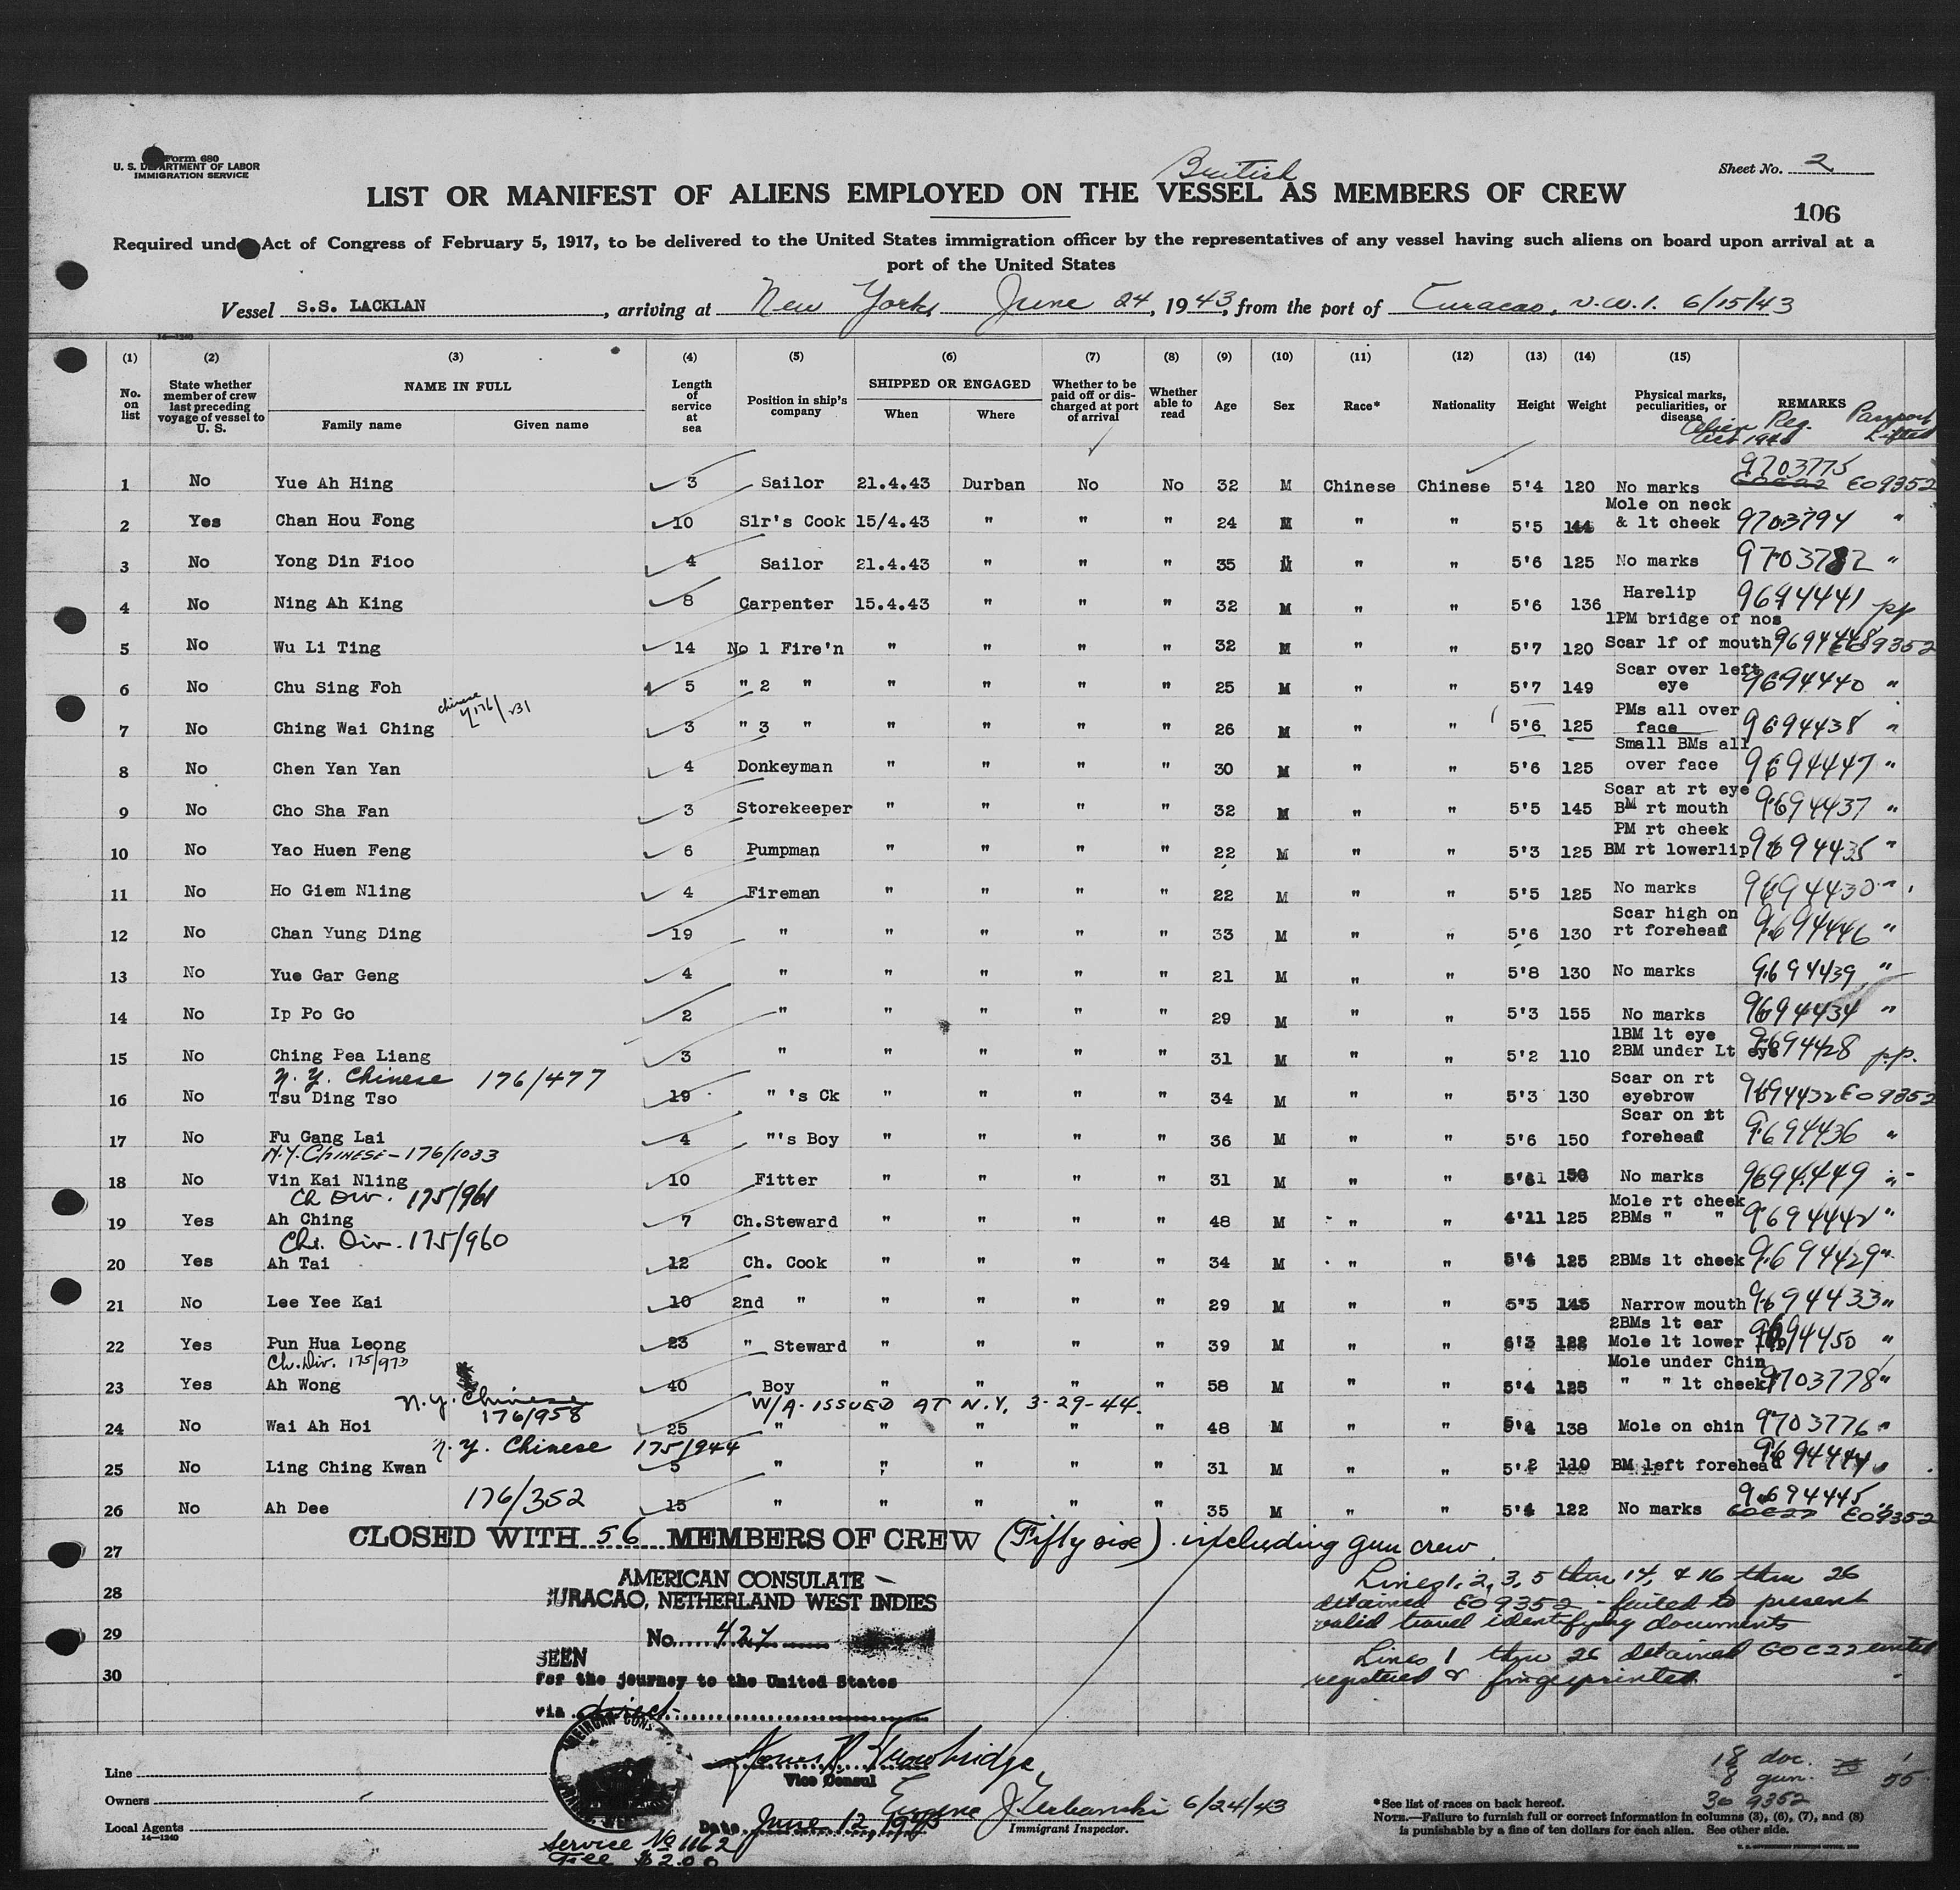 Form 680
U. S. DEPARTMENT OF LABOR
IMMIGRATION SERVICE
Sheet No. 2
British
LIST OR MANIFEST OF ALIENS EMPLOYED ON THE VESSEL AS MEMBERS OF CREW
106
Required under Act of Congress of February 5, 1917, to be delivered to the United States immigration officer by the representatives of any vessel having such aliens on board upon arrival at a
port of the United States
Vessel S.S. LACKLAN, arriving at New York, June 24, 1943, from the port of Curacao, N.W.I. 6/15/43
14—1240
(1) (2) (3) (4) (5) (6) (7) (8) (9) (10) (11) (12) (13) (14) (15)
No. on list
State whether member of crew last preceding voyage of vessel to U. S.
NAME IN FULL
Family name Given name
Length of service at sea
Position in ship's company
SHIPPED OR ENGAGED
When Where
Whether to be paid off or discharged at port of arrival
Whether able to read
Age Sex Race* Nationality Height Weight
Physical marks, peculiarities, or disease
REMARKS
Alien Reg. Passport
Act 1940 Lifted
9703775
1 No Yue Ah Hing 3 Sailor 21.4.43 Durban No No 32 M Chinese Chinese 5'4 120 No marks GOC22 EO9352
2 Yes Chan Hou Fong 10 Slr's Cook 15/4.43 " " " 24 M " " 5'5 144 Mole on neck & lt cheek 9703794 "
3 No Yong Din Fioo 4 Sailor 21.4.43 " " " 35 M " " 5'6 125 No marks 9703782 "
4 No Ning Ah King 8 Carpenter 15.4.43 " " " 32 M " " 5'6 136 Harelip 1PM bridge of nos 9694441 pp
5 No Wu Li Ting 14 No 1 Fire'n " " " " 32 M " " 5'7 120 Scar lf of mouth 9694448 EO9352
6 No Chu Sing Foh 5 " 2 " " " " " 25 M " " 5'7 149 Scar over left eye 9694440 "
chinese 176/231
7 No Ching Wai Ching 3 " 3 " " " " " 26 M " " 5'6 125 PMs all over face 9694438 "
8 No Chen Yan Yan 4 Donkeyman " " " " 30 M " " 5'6 125 Small BMs all over face 9694447 "
9 No Cho Sha Fan 3 Storekeeper " " " " 32 M " " 5'5 145 Scar at rt eye BM rt mouth 9694437 "
10 No Yao Huen Feng 6 Pumpman " " " " 22 M " " 5'3 125 PM rt cheek BM rt lowerlip 9694435 "
11 No Ho Giem Nling 4 Fireman " " " " 22 M " " 5'5 125 No marks 9694430 "
12 No Chan Yung Ding 19 " " " " " 33 M " " 5'6 130 Scar high on rt forehead 9694446 "
13 No Yue Gar Geng 4 " " " " " 21 M " " 5'8 130 No marks 9694439 "
14 No Ip Po Go 2 " " " " " 29 M " " 5'3 155 No marks 9694434 "
15 No Ching Pea Liang 3 " " " " " 31 M " " 5'2 110 1BM lt eye 2BM under Lt eye 9694428 p.p.
N.Y. Chinese 176/477
16 No Tsu Ding Tso 19 " 's Ck " " " " 34 M " " 5'3 130 Scar on rt eyebrow 9694432 EO9352
17 No Fu Gang Lai 4 "'s Boy " " " " 36 M " " 5'6 150 Scar on rt forehead 9694436 "
N.Y. CHINESE - 176/1033
18 No Vin Kai Nling 10 Fitter " " " " 31 M " " 150 No marks 9694449 "
Ch Div. 175/961
19 Yes Ah Ching 7 Ch.Steward " " " " 48 M " " 4'11 125 Mole rt cheek 2BMs " " 9694442 "
Ch. Div. 175/960
20 Yes Ah Tai 12 Ch. Cook " " " " 34 M " " 5'4 125 2BMs lt cheek 9694429 "
21 No Lee Yee Kai 10 2nd " " " " " 29 M " " 5'5 145 Narrow mouth 9694433 "
22 Yes Pun Hua Leong 23 " Steward " " " " 39 M " " 5'3 122 2BMs lt ear Mole lt lower lip 9694450 "
Ch. Div. 175/973
23 Yes Ah Wong 40 Boy " " " " 58 M " " 5'4 125 Mole under Chin " " lt cheek 9703778 "
N.Y. Chinese 176/958 W/A ISSUED AT N.Y. 3-29-44.
24 No Wai Ah Hoi 25 " " " " " 48 M " " 5'4 138 Mole on chin 9703776 "
N.Y. Chinese 175/944
25 No Ling Ching Kwan 5 " " " " " 31 M " " 5'2 110 BM left forehead 9694444 "
176/352
26 No Ah Dee 15 " " " " " 35 M " " 5'4 122 No marks 9694445 GOC22 EO9352
27 CLOSED WITH 56 MEMBERS OF CREW (Fifty six) including gun crew
28
29
30
AMERICAN CONSULATE
CURACAO, NETHERLAND WEST INDIES
No. 427
SEEN
For the journey to the United States
via direct
Lines 1, 2, 3, 5 thru 14, & 16 thru 26
detained EO 9352 - failed to present
valid travel identifying documents
Lines 1 thru 26 detained GOC22 until
registered & fingerprinted
James R Trowbridge
Vice Consul
Date June 12, 1943
Service No 1162
Fee $2.00
Line
Owners
Local Agents
14—1240
Eugene J Urbanski 6/24/43
Immigrant Inspector.
18 doc.
8 gun.
30 9352
55
*See list of races on back hereof.
NOTE.—Failure to furnish full or correct information in columns (3), (6), (7), and (8)
is punishable by a fine of ten dollars for each alien. See other side.